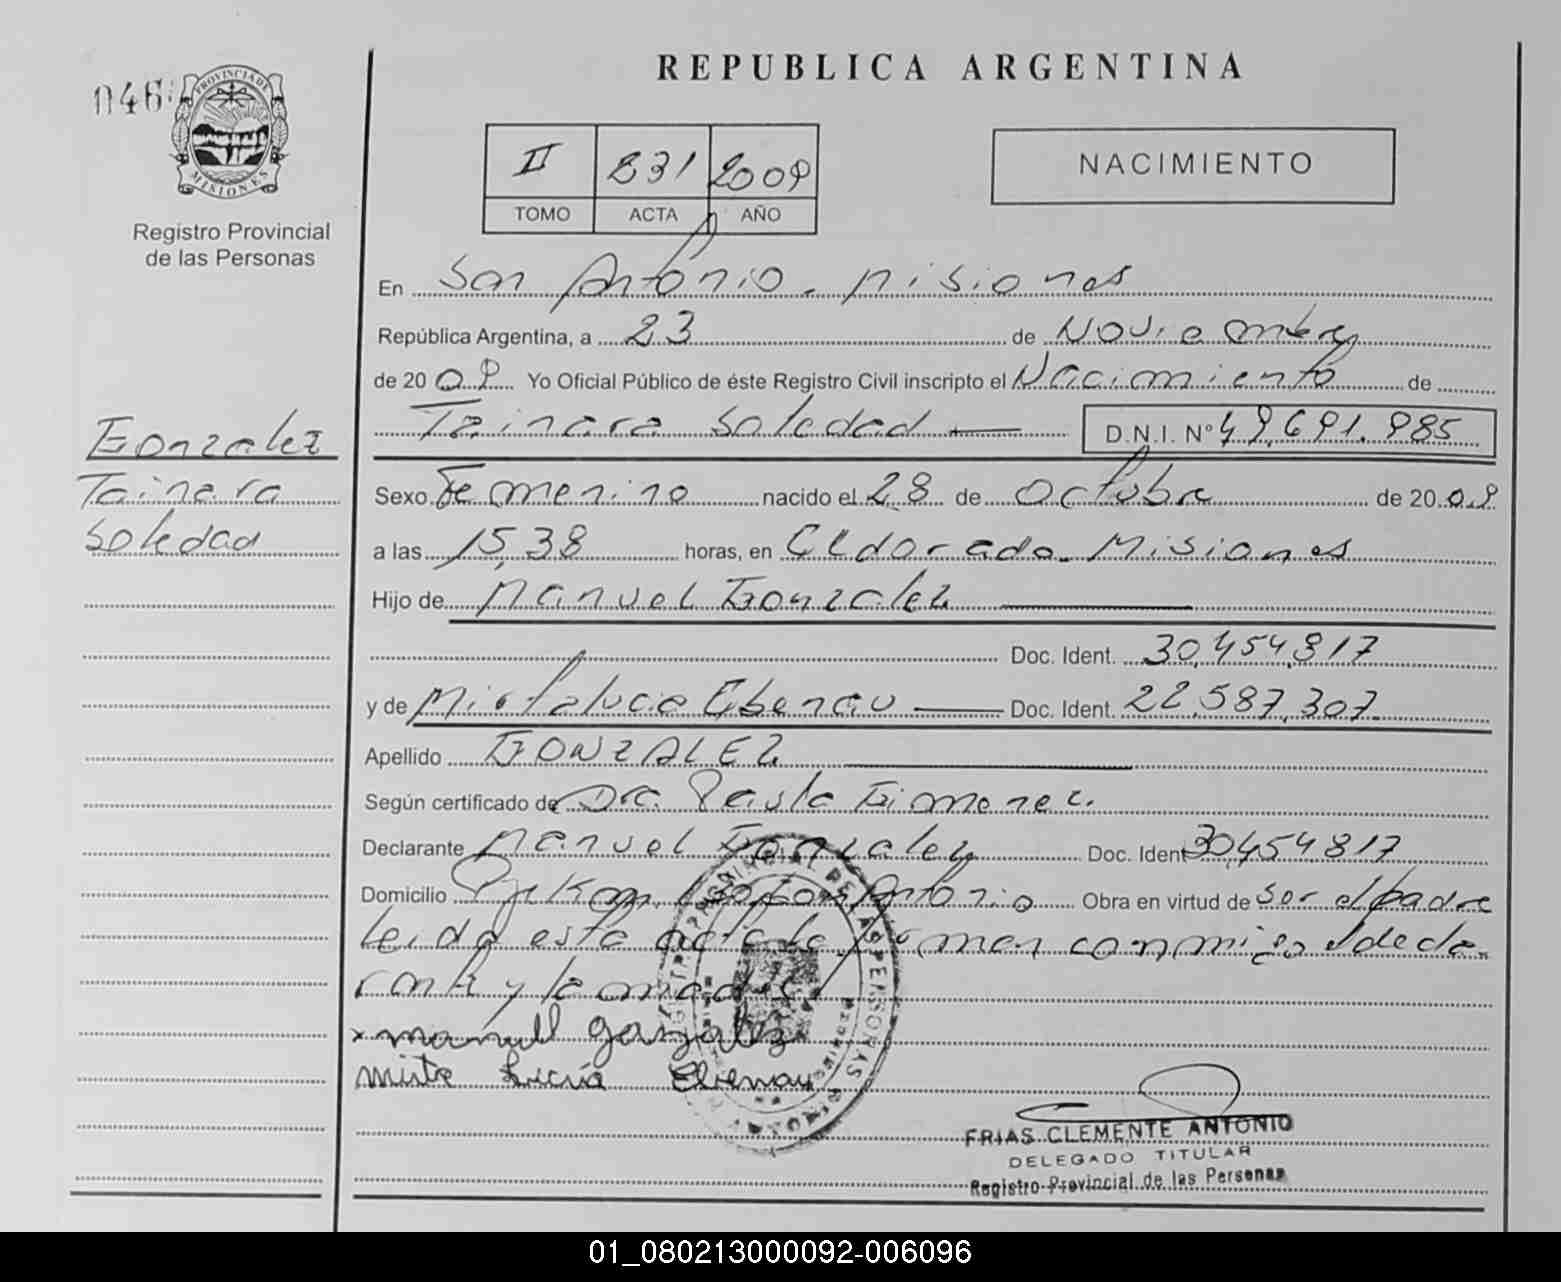 REPUBLICA ARGENTINA
046
PROVINCIA DE
MISIONES
Registro Provincial
de las Personas
II 831 2009
TOMO ACTA AÑO
NACIMIENTO
En San Antonio. Misiones
República Argentina, a 23 de Noviembre
de 2009 Yo Oficial Público de éste Registro Civil inscripto el Nacimiento de
Tainara Soledad D.N.I. N° 49.691.985
Gonzalez
Tainara
Soledad
Sexo Femenino nacido el 28 de Octubre de 2009
a las 15,38 horas, en Eldorado - Misiones
Hijo de Manuel Gonzalez
Doc. Ident. 30.454.817
y de Mirta Lucia Ebenau Doc. Ident. 22.587.307
Apellido GONZALEZ
Según certificado de Dra. Paula Gimenez.
Declarante Manuel Gonzalez Doc. Ident 30.454.817
Domicilio San Antonio Obra en virtud de Ser el padre
leida esta acta la firman conmigo el decla-
rante y la madre
x manuel gonzalez
Mirta Lucia Ebenau
FRIAS CLEMENTE ANTONIO
DELEGADO TITULAR
Registro Provincial de las Personas
01_080213000092-006096